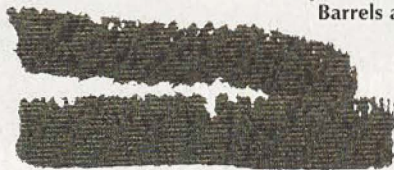 Barrels a